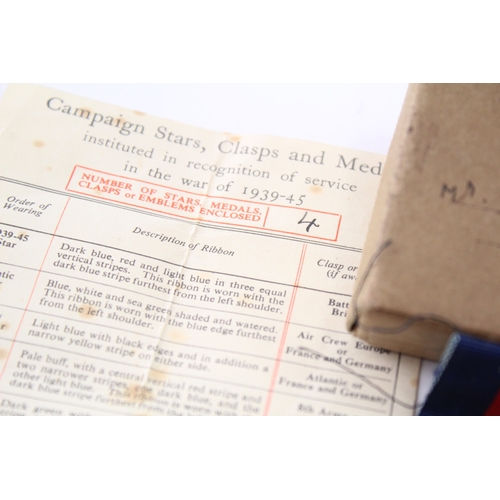 Campaign Stars, Clasps and Med
instituted in recognition of service
in the war of 1939-45
NUMBER OF STARS, MEDALS,
CLASPS or EMBLEMS ENCLOSED
4
Order of
Wearing
Description of Ribbon
Clasp or
(if aw
939-45
Star
Dark blue, red and light blue in three equal
vertical stripes. This ribbon is worn with the
dark blue stripe furthest from the left shoulder.
Batt
Bri
Blue, white and sea green shaded and watered.
This ribbon is worn with the blue edge furthest
from the left shoulder.
Air Crew Europe
or
France and Germany
Light blue with black edges and in addition a
narrow yellow stripe on either side.
Atlantic or
France and Germany
Pale buff, with a central vertical red stripe and
two narrower stripes
other light blue.
dark blue stripe furthest from the
8th Arm
Dark green
Mr.